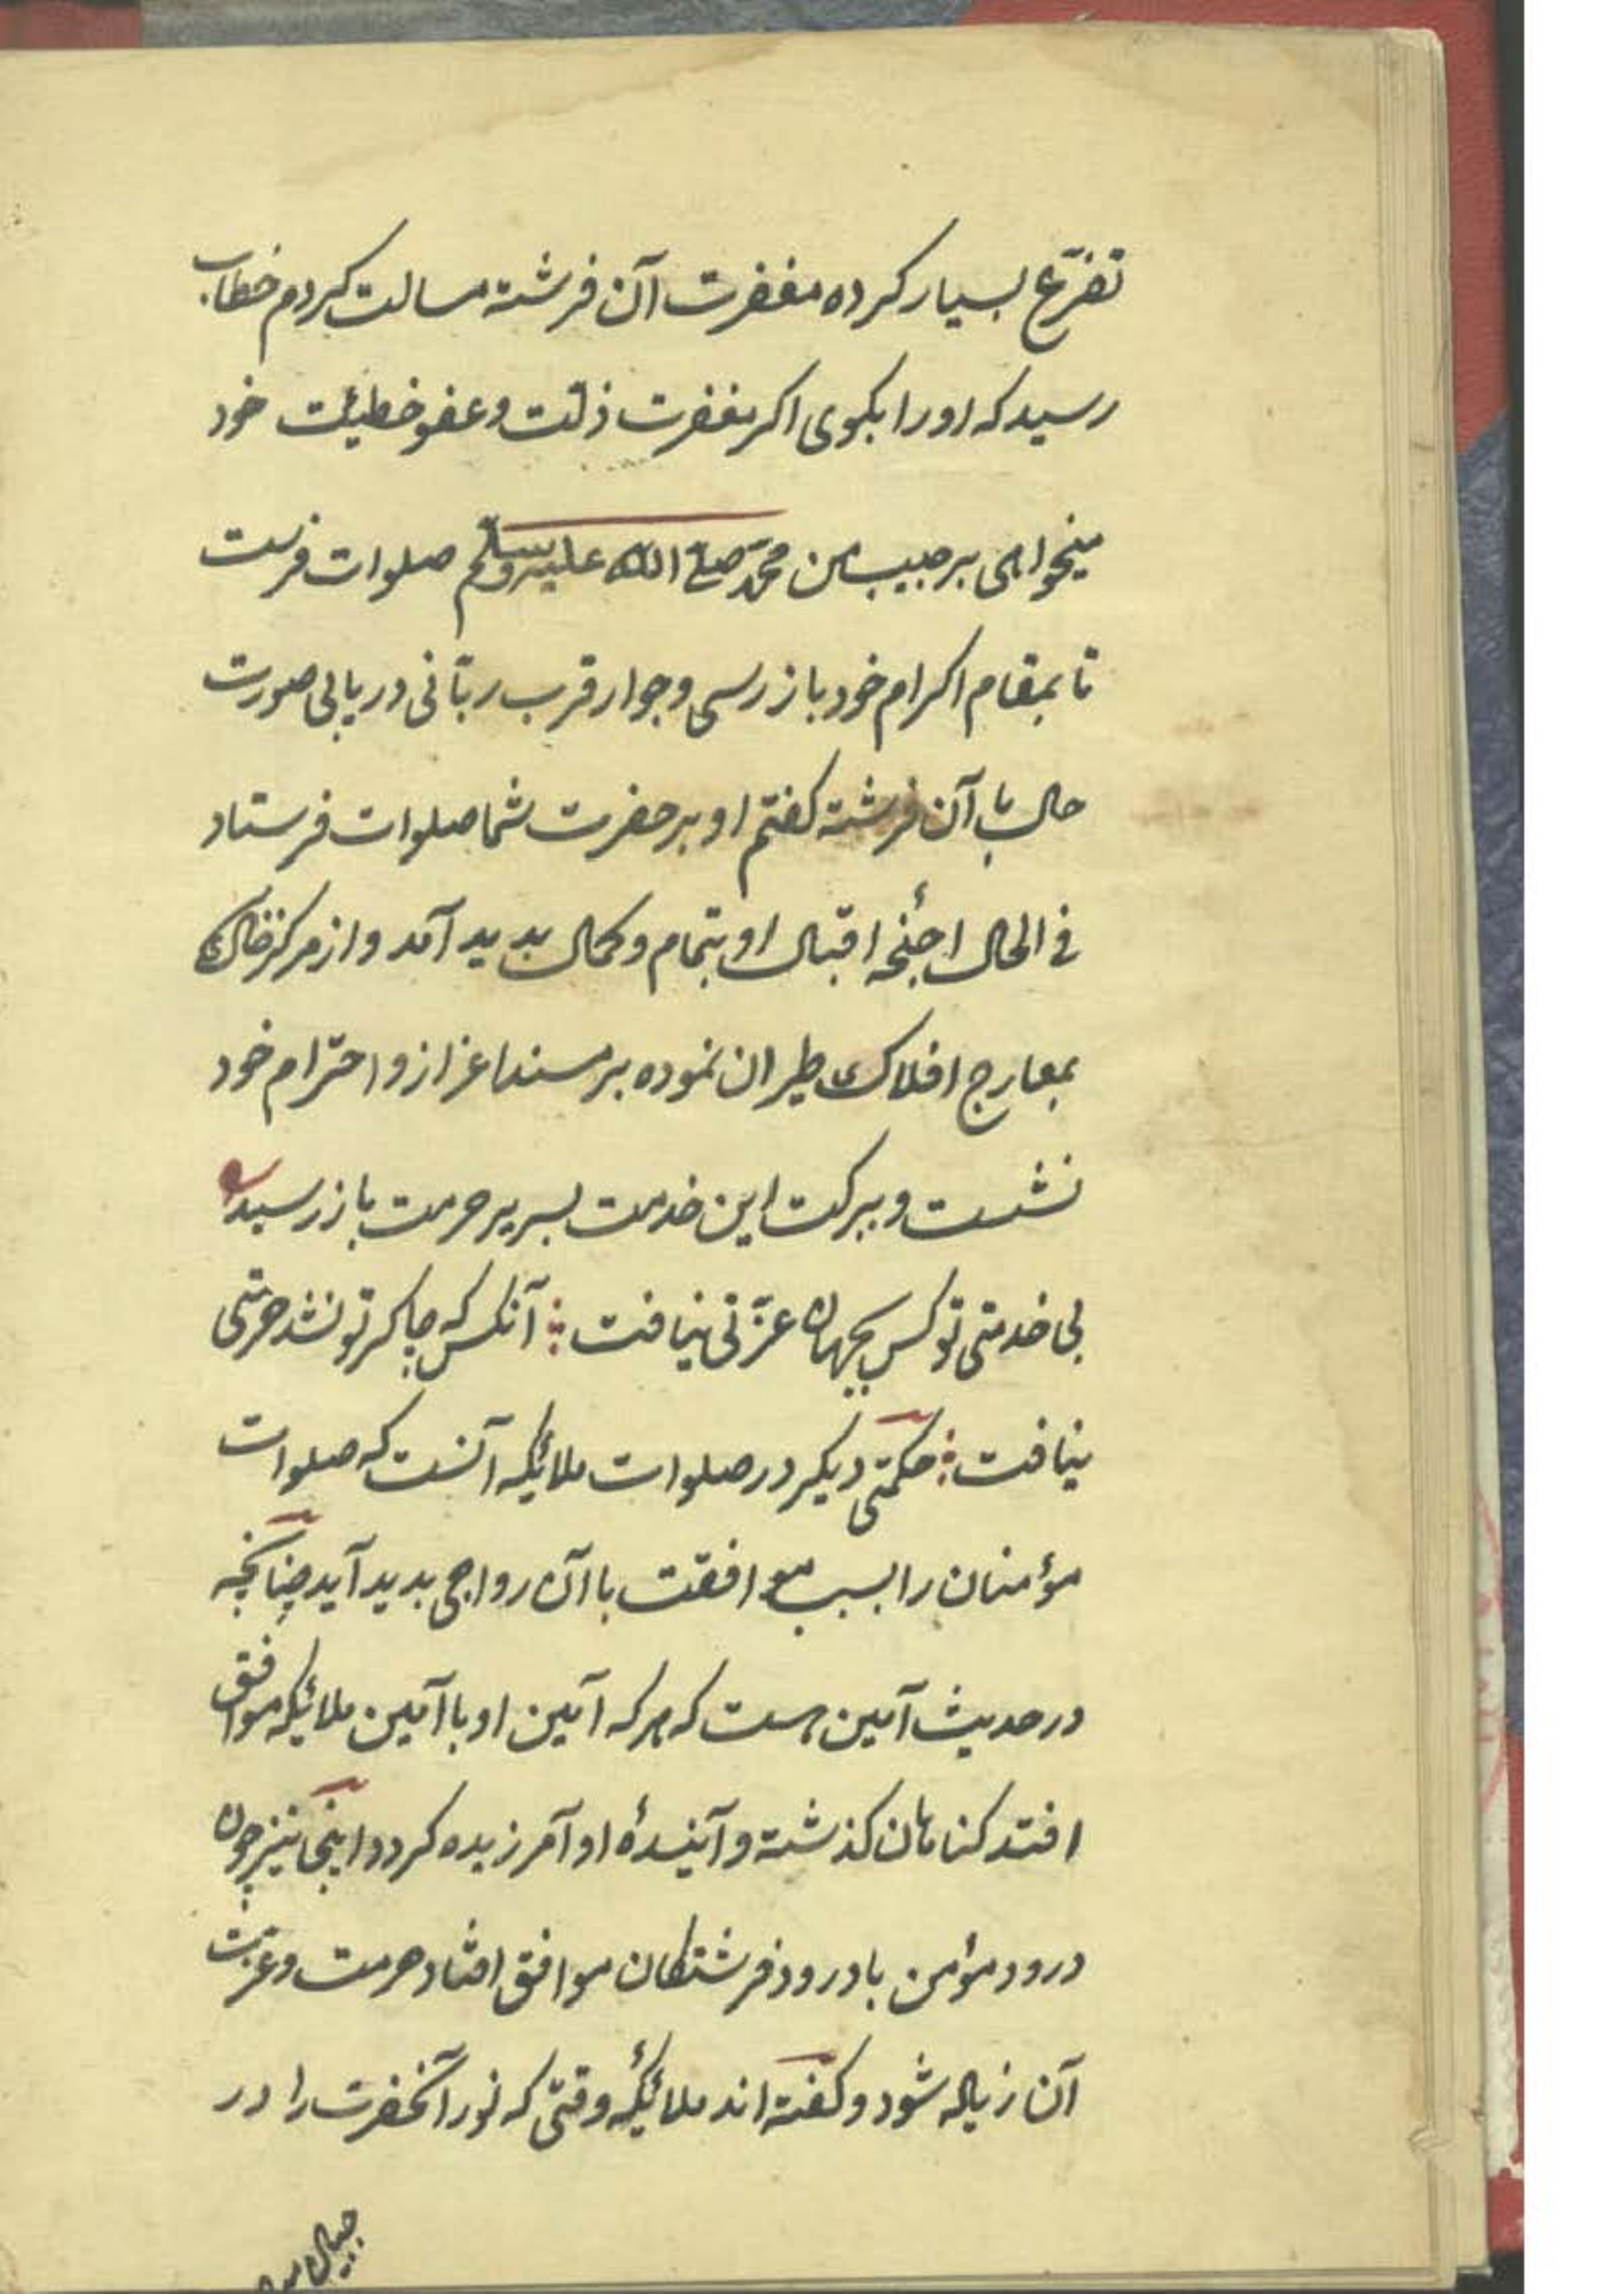 تضرّع بسیار کرده مغفرت آن فرشته مسالت کردم خطاب
رسید که او را بکوی اکر مغفرت ذلّت و عفو خطیئت خود
میخواهی بر حبیب من محمّد صلّے اللّه علیه وسلّم صلوات فرست
تا بمقام اکرام خود باز رسی و جوار قرب ربّانی دریابی صورت
حال با آن فرشته کفتم او بر حضرت شما صلوات فرستاد
فی الحال اجنحۀ اقبال او بتمام و کمال بدید آمد و از مرکز خاک
بمعارج افلاک طیران نموده بر مسند اعزاز و احترام خود
نشست و ببرکت این خدمت بسریر حرمت باز رسید
بی خدمتی تو کس بجهان عزّتی نیافت ⁝ آنکس که چاکر تو نشد حرمتی
نیافت ⁝ حکمتی دیکر در صلوات ملائکه آنست که صلوات
مؤمنان را بسبب موافقت با آن رواجی بدید آید چنانچه
در حدیث آمین هست که هر که آمین او با آمین ملائیکه موافق
افتد کناهان کذشته و آیندۀ او آمرزیده کردد و اینجا نیز چون
درود مؤمن با درود فرشتکان موافق افتاد حرمت و عزّت
آن زیاله شود و کفته اند ملائیکه وقتی که نور آنحضرت را در